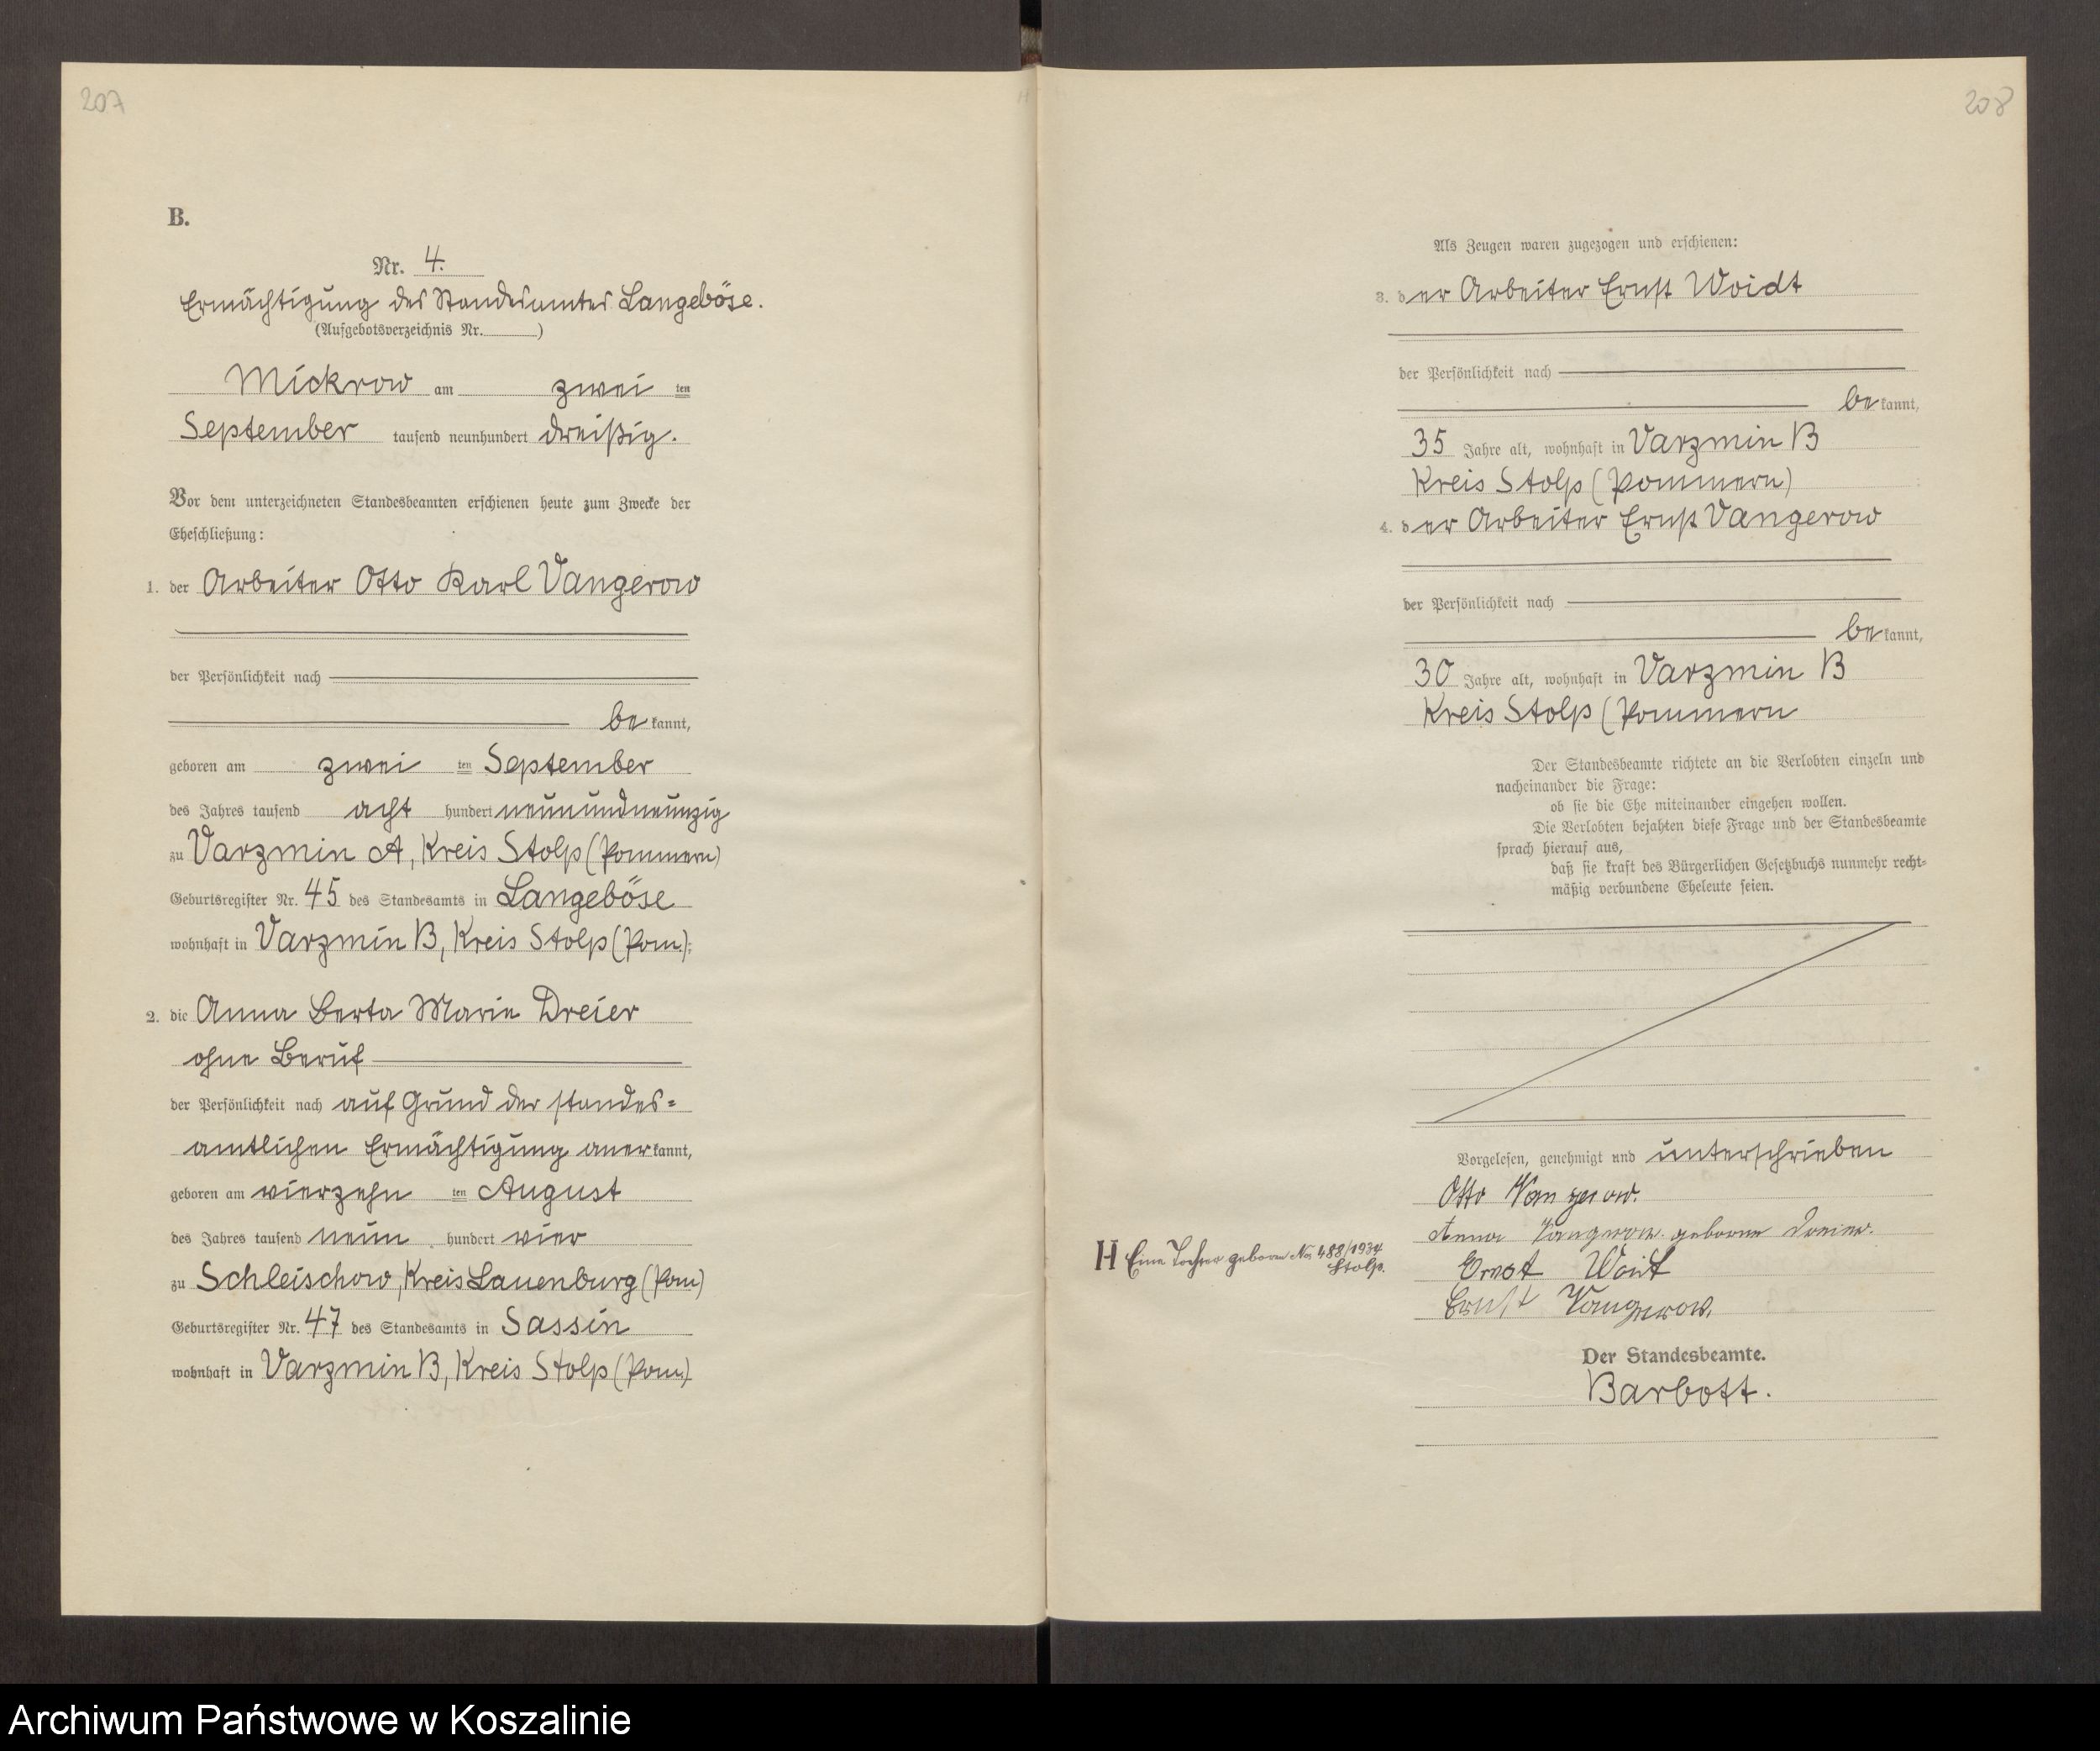 207
B.
Nr. 4.
Ermächtigung des Standesamtes Langeböse.
(Aufgebotsverzeichnis Nr. )
Mickrow am zwei ten
September tausend neunhundert dreißig.
Vor dem unterzeichneten Standesbeamten erschienen heute zum Zwecke der
Eheschließung:
1. der Arbeiter Otto Karl Vangerow
der Persönlichkeit nach
be kannt,
geboren am zwei ten September
des Jahres tausend acht hundert neunundneunzig
zu Varzmin A, Kreis Stolp (Pommern)
Geburtsregister Nr. 45 des Standesamts in Langeböse
wohnhaft in Varzmin B, Kreis Stolp (Pom.);
2. die Anna Berta Marie Dreier
ohne Beruf
der Persönlichkeit nach auf Grund der standes=
amtlichen Ermächtigung aner kannt,
geboren am vierzehn ten August
des Jahres tausend neun hundert vier
zu Schleischow, Kreis Lauenburg (Pom)
Geburtsregister Nr. 47 des Standesamts in Sassin
wohnhaft in Varzmin B, Kreis Stolp (Pom.)
208
Als Zeugen waren zugezogen und erschienen:
3. der Arbeiter Ernst Woidt
der Persönlichkeit nach
be kannt,
35 Jahre alt, wohnhaft in Varzmin B
Kreis Stolp (Pommern)
4. der Arbeiter Ernst Vangerow
der Persönlichkeit nach
be kannt,
30 Jahre alt, wohnhaft in Varzmin B
Kreis Stolp (Pommern
Der Standesbeamte richtete an die Verlobten einzeln und
nacheinander die Frage:
ob sie die Ehe miteinander eingehen wollen.
Die Verlobten bejahten diese Frage und der Standesbeamte
sprach hierauf aus,
daß sie kraft des Bürgerlichen Gesetzbuchs nunmehr recht=
mäßig verbundene Eheleute seien.
Vorgelesen, genehmigt und unterschrieben
Otto Vangerow.
Anna Vangerow geborne Dreier.
H Eine Tochter geboren No 488/1934
Stolp.
Ernst Woit
Ernst Vangerow.
Der Standesbeamte.
Barbott.
Archiwum Państwowe w Koszalinie